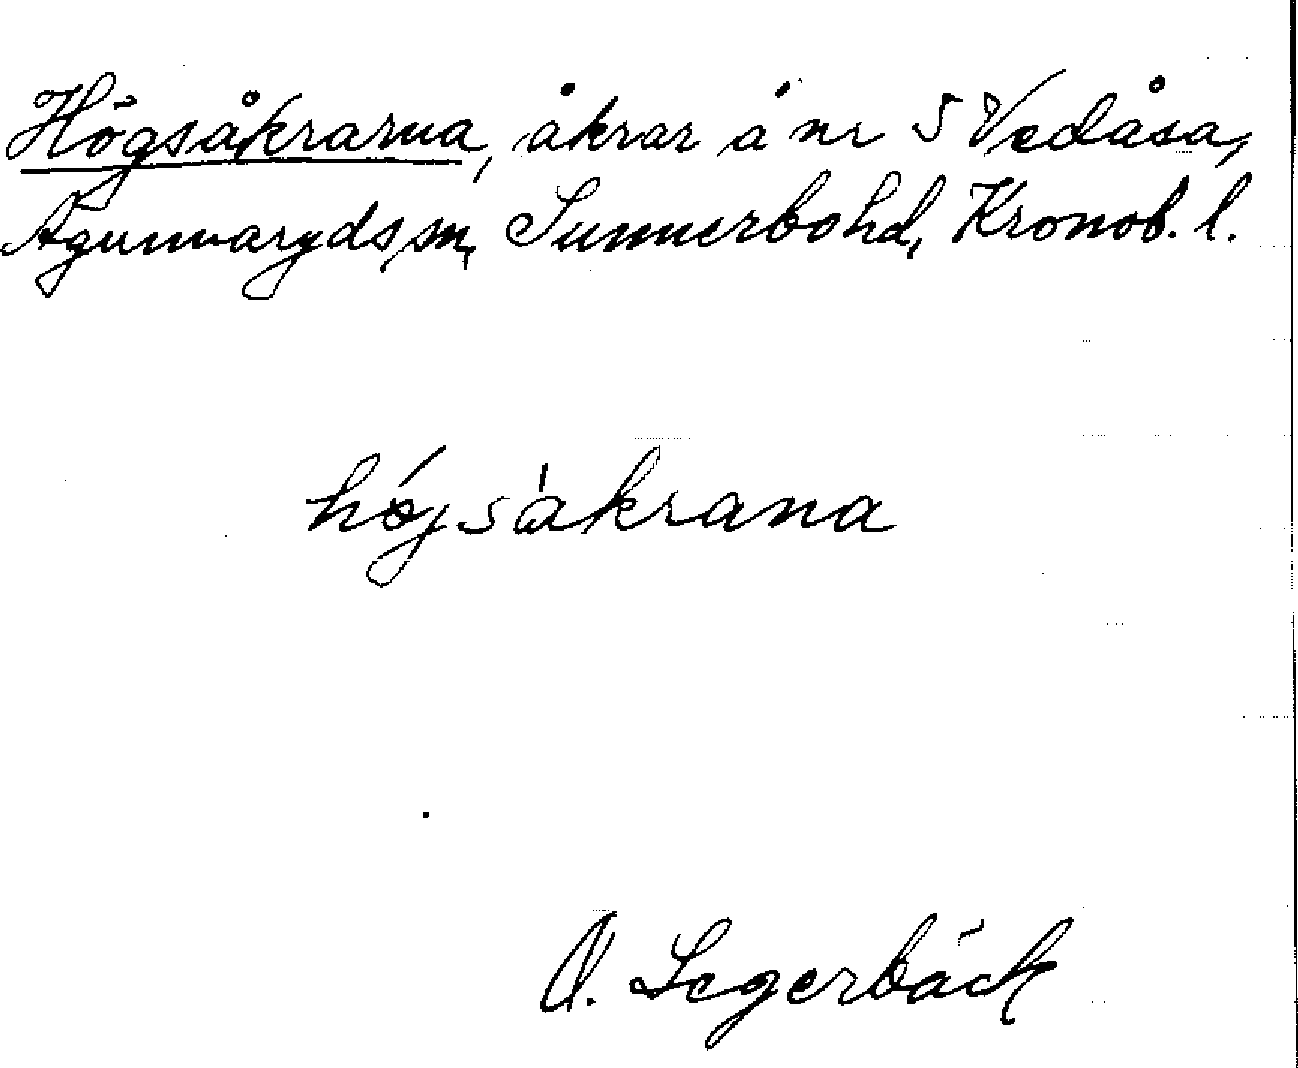 Högsåkrarna, åkrar å nr 5 Vedåsa,
Agunnaryds sn, Sunnerbo hd, Kronob. l.
högsåkrana
O. Segerbäck